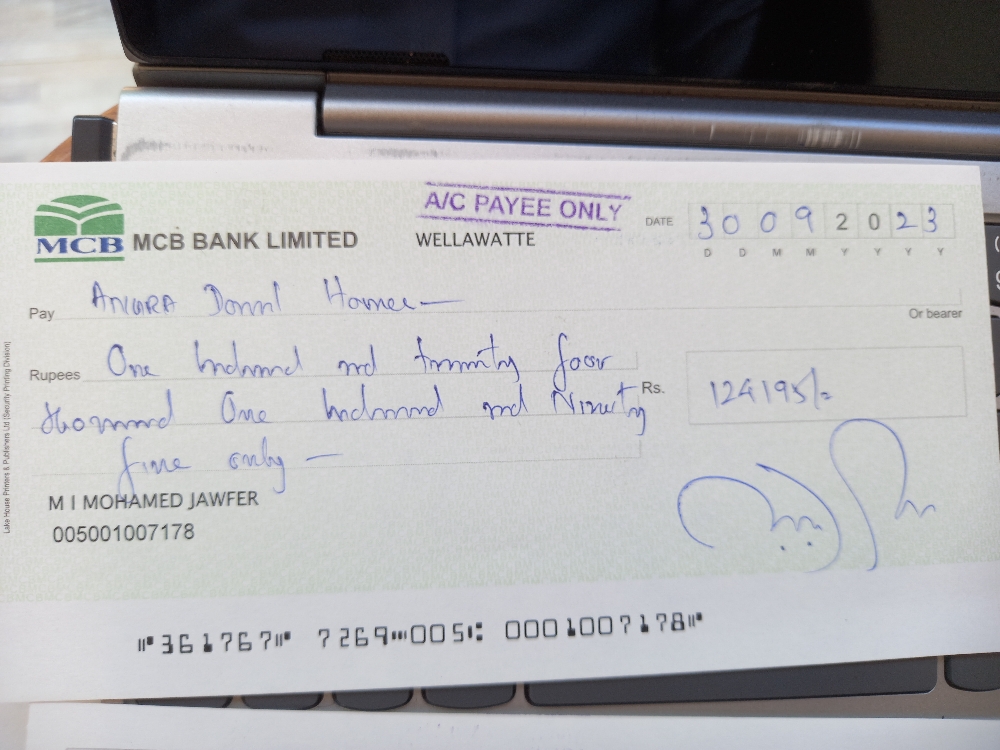 A/C PAYEE ONLY
MCB MCB BANK LIMITED WELLAWATTE DATE 3 0 0 9 2 0 2 3
D D M M Y Y Y Y
Pay Or bearer
Rupees One hundred and twenty four
thousand One hundred and Ninety Rs. 124195/=
five only —
M I MOHAMED JAWFER
005001007178
Lake House Printers & Publishers Ltd (Security Printing Division)
⑈361767⑈ 7269⑉005⑆ 0001007178⑈